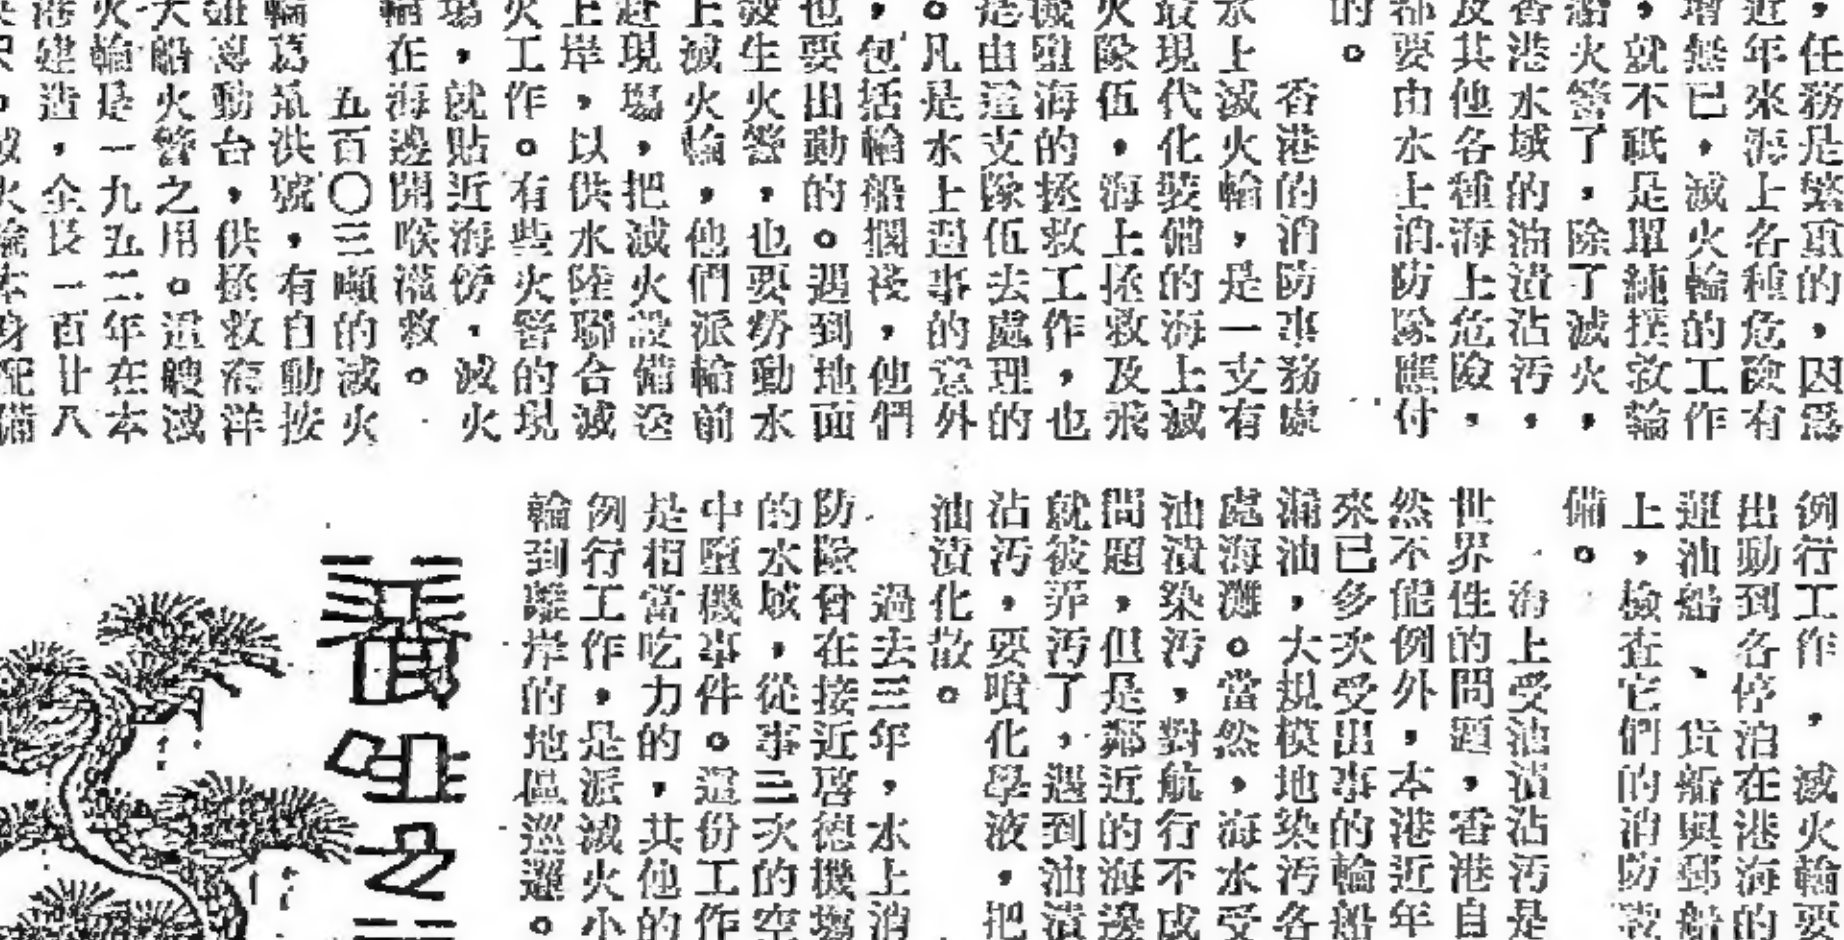 ，任務是繁重的，因爲
近年來海上各種危險有
增無已，滅火輪的工作
，就不祇是單純撲救輪
船火警了，除了滅火，
香港水域的油漬沾污，
及其他各種海上危險，
都要由水上消防隊應付
的。
香港的消防事務處
水上滅火輪，是一支有
最現代化裝備的海上滅
火隊伍，海上拯救及飛
機墮海的拯救工作，也
是由這支隊伍去處理的
。凡是水上遇事的意外
，包括輪船擱淺，他們
也要出動的。遇到地面
發生火警，也要勞動水
上滅火輪，他們派輪前
赴現場，把滅火設備送
上岸，以供水陸聯合滅
火工作。有些火警的現
場，就貼近海傍，滅火
輪在海邊開喉灌救。
五百〇三噸的滅火
輪葛量洪號，有自動按
鈕轉動台，供拯救海洋
大船火警之用。這艘滅
火輪是一九五二年在本
港建造，全長一百廿八
呎。滅火輪本身配備
例行工作，滅火輪要
出動到各停泊在港海的
運油船、貨船與郵船
上，檢查它們的消防設
備。
海上受油漬沾污是
世界性的問題，香港自
然不能例外，本港近年
來已多次受出事的輪船
漏油，大規模地染污各
處海灘。當然，海水受
油漬染污，對航行不成
問題，但是鄰近的海邊
就被弄污了，遇到油漬
沾污，要噴化學液，把
油漬化散。
過去三年，水上消
防隊曾在接近啓德機塲
的水域，從事三次的空
中墮機事件。這份工作
是相當吃力的，其他的
例行工作，是派滅火小
輪到離岸的地區巡邏。
養生之